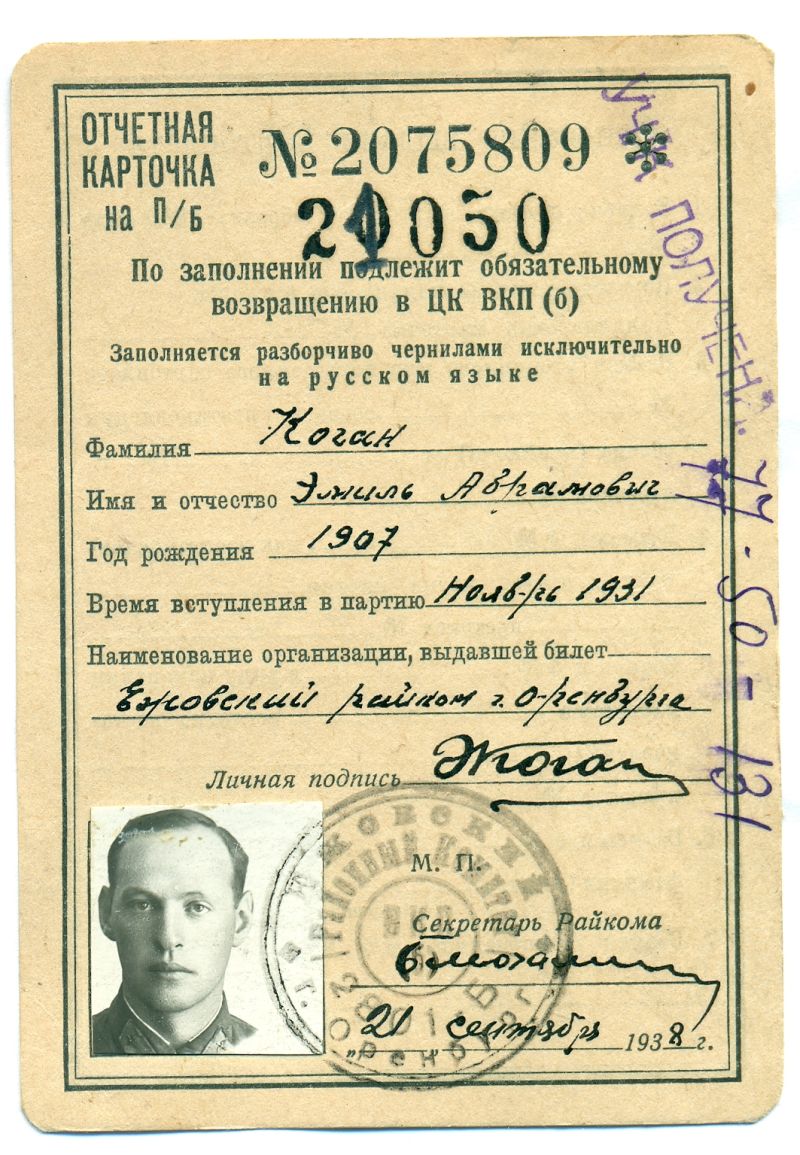 ОТЧЕТНАЯ
КАРТОЧКА
на П/Б
№ 2075809
21050
По заполнении подлежит обязательному
возвращению в ЦК ВКП (б)
Заполняется разборчиво чернилами исключительно
на русском языке
Фамилия Коган
Имя и отчество Эмиль Абрамович
Год рождения 1907
Время вступления в партию Ноябрь 1931
Наименование организации, выдавшей билет
Ежовский райком г. Оренбурга
Личная подпись ЭКоган
М. П.
Секретарь Райкома
„21" сентября 1938 г.
ПОЛУЧЕН